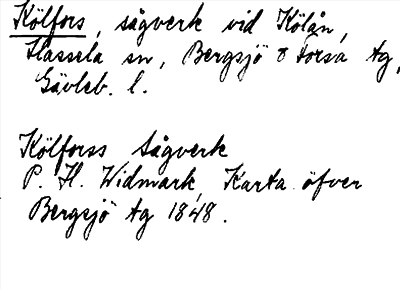 Kölfors, sågverk vid Kölån,
Hassela sn, Bergsjö o Forsa tg,
Gävleb. l.
Kölforss Sågverk
P. H. Widmark, Karta öfver
Bergsjö tg 1848.